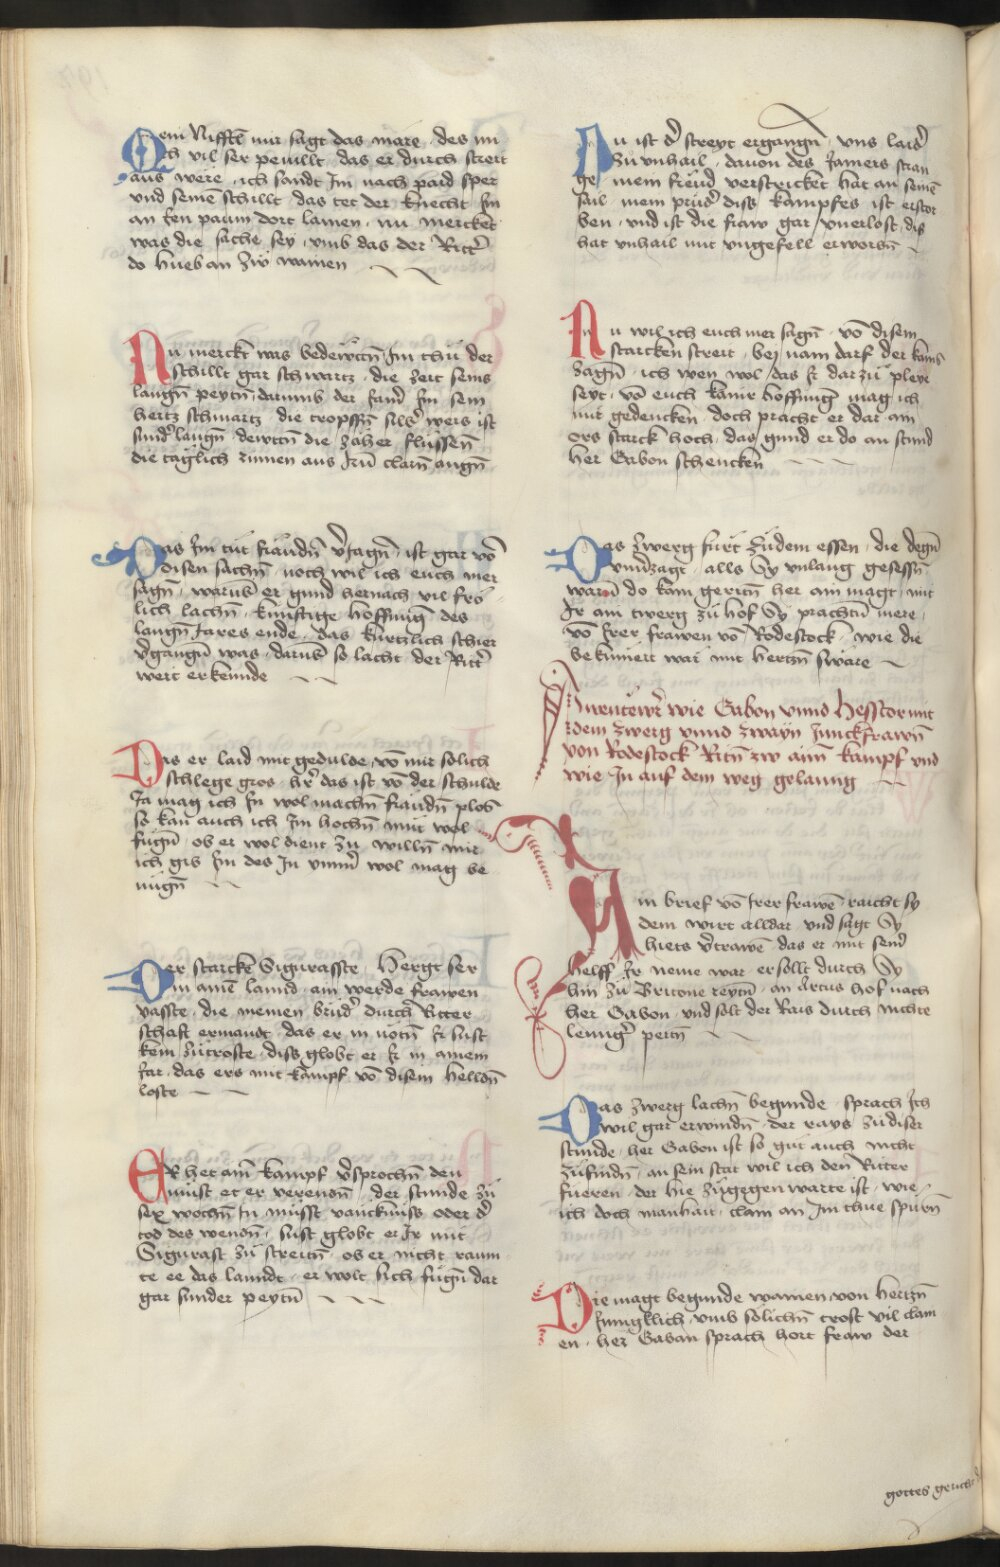 Mein Nifftl mir sagt das mare des mi
ch vil ser pevillt das er durch streit
aus were ich sandt Im nach paid sper
und seinē schillt das tet der knecht Im
an den paum dort lainen nu mercket
was die sache sey umb das der Rittˀ
do hueb an zw wainen
Nu merckt was bedewttn̄ Im thu der
schillt gar schwartz die zeit seins
langn̄ peytn̄ darumb der sand Im sein
hertz schwartz die tropffn̄ silbˀ weis ist
sundˀ laugn̄ dewttn̄ die zäher flüssen̄
die täglich rinnen aus Irn̄ clarn̄ augn̄
Das Im tüt fräudn̄ v̓jagn̄ ist gar vō
disen sachn̄ noch wil ich euch mer
sagn̄ warūb er gund hernach vil frö
lich lachn̄ künftige hoffnūg des
langn̄ Jares ende das kürtzlich schier
v̓gangn̄ was darūb so lacht der Rittˀ
wert erkennde
Dis er laid mit gedulde vō mir solich
schlege gros hr̓ das ist vō der schulde
Ia mag ich In wol machn̄ fraudn̄ plos
so kan auch ich Im hochn̄ müt wol
fugn̄ ob er wol dient zu willn̄ mir
ich gib Im des In ummˀ wol mag be
nügn̄
Der starcke Sigurasste hergt ser
in ainē lannd ain werde frawen
vasste die meinen brudˀ durch Ritter
schaft ermandt das er in nötn̄ Ir lust
kem zutroste diss globt er Ir in ainem
Jar das ers mit kampf vō disem helldn̄
loste
Er het ainn̄ kampf v̓sprochn̄ den
müst et er verendn̄ der stunde zu
sex wochn̄ In müsst vancknüss oder dˀ
tod des wendn̄ sust globt er Ir mit
Sigurast zu streitn̄ ob er nicht raum
te ee das lanndt er wolt sich fugn̄ dar
gar sunder peytn̄
Nu ist dˀ streyt ergangn̄ uns laidˀ
zu unhail davon des Jamers stran
ge mein freud verstricket hat an seinē
sail mein prudˀ diss kampfes ist erstor
ben und ist die fraw gar unerlost dis
hat unhail mit ungefell erworbn̄
Nu wil ich euch mer sagn̄ vō disem
starcken streit bey nam darf der kampf
zagn̄ ich wen wol das Ir dar zu pleyt
seyt vō euch kainr hoffnūg mag ich
mit gedencken doch pracht er dar ain
ors starck hoch das gund er do an stund
her Gabon schencken
Das zwerg furt zu dem essen die degn̄
unv̓zagt alls Sy unlang gesessn̄
warn̄ do kam geritn̄ her ain magt mit
Ir ain twerg zu hof Sy prachtn̄ mere
vō Irer frawen vō Rodestock wie die
bekumert war mit hertzn̄ sware
Awentewr̓ wie Gabon unnd Hesstor mit
dem zwerg unnd zwayn Junckfrawn̄
von Rodestock Ritn̄ zw ainn̄ kampf und
wie In auf dem weg gelanng
Ain brief vō Irer frawē raicht sy
dem wirt alldar und sagt Sy
hiets v̓trawē das er mit seinˀ
helff Ir neme war er sollt durch Sy
hin zu Britone reytn̄ an Artus hof nach
her Gabon und solt der Rais durch nichte
lennigˀ peitn̄
Das zwerg lachn̄ begunde sprach Ich
wil gar erwindn̄ der rays zu diser
stunde her Gabon ist so gut auch nicht
zufindn̄ an sein stat wil ich den Ritter
fueren der hie zugegen warte ist wie
ich doch manhait clain an Im thue spurn̄
Die magt begunde wainen von hertzn̄
Innigklich umb solichn̄ trost vil clain
en her Gaban sprach hort fraw der
gottes